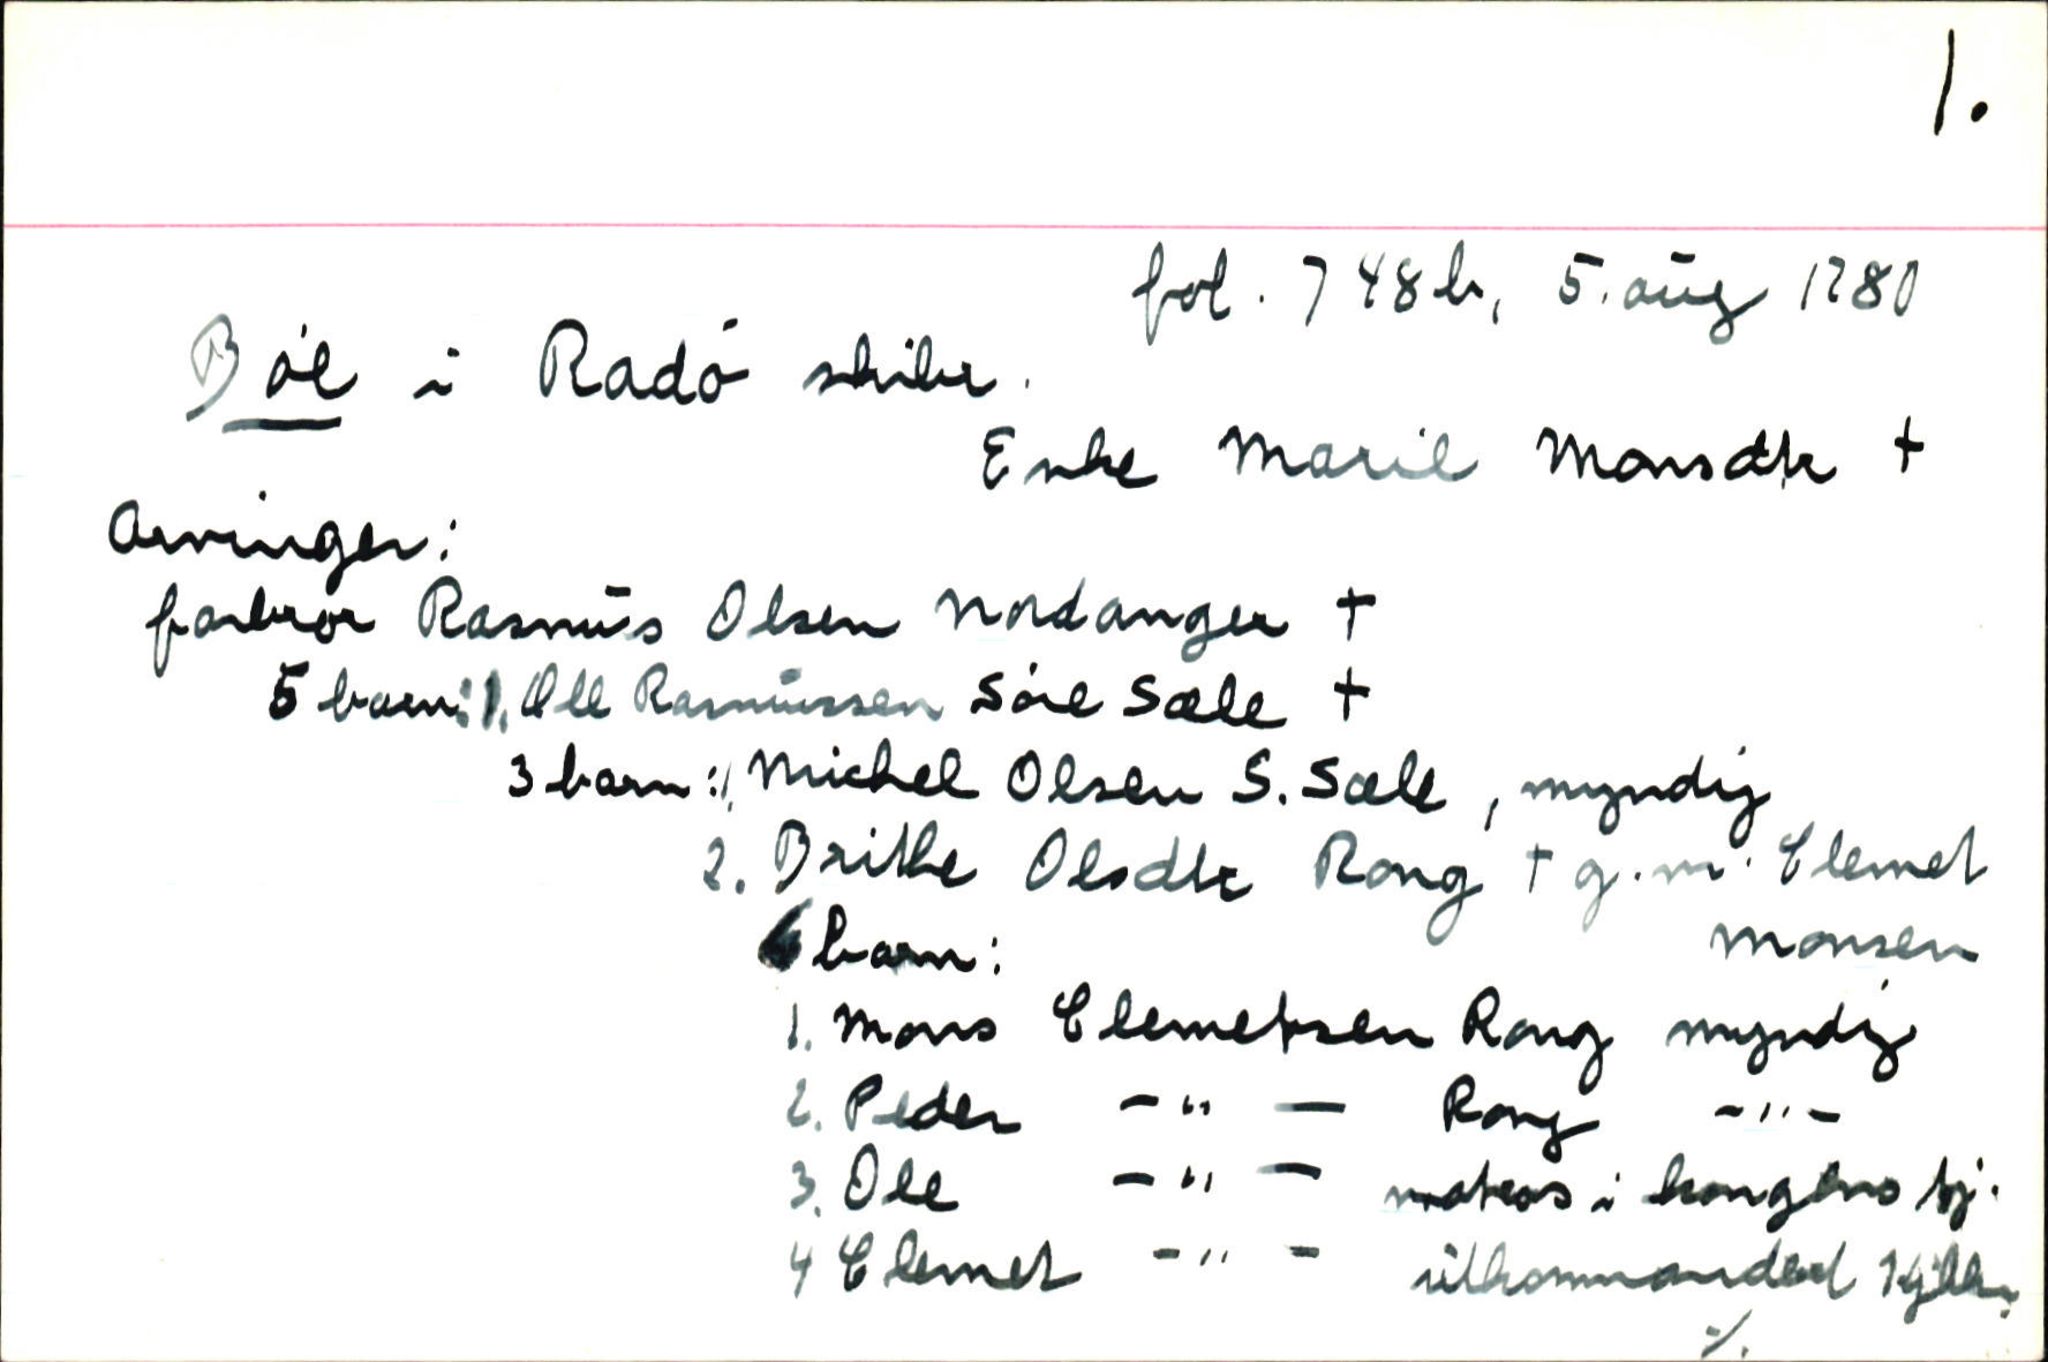 1.
fol. 748b, 5. aug 1780
Bøe i Radø skibr.
Enke Marie Monsdtr †
Arvinger:
farbror Rasmus Olsen Nordanger †
5 barn: 1. Ole Rasmussen Søre Sæle †
3 barn: 1. Michel Olsen S. Sæle, myndig
2. Brithe Olsdtr Rong † g.m. Clemet
Monsen
6 barn:
1. Mons Clemetsen Rong myndig
2. Peder -"- Rong -"-
3. Ole -"- matros i kongens tj.
4 Clemet -"- utkommandert
./.